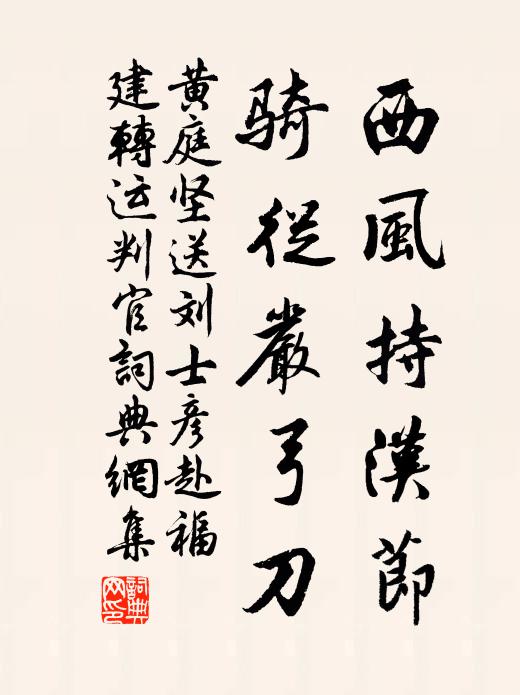 西風持漢節
騎從嚴弓刀
黄庭坚送刘士彦赴福
建轉运判官詞典網集
詞典网印